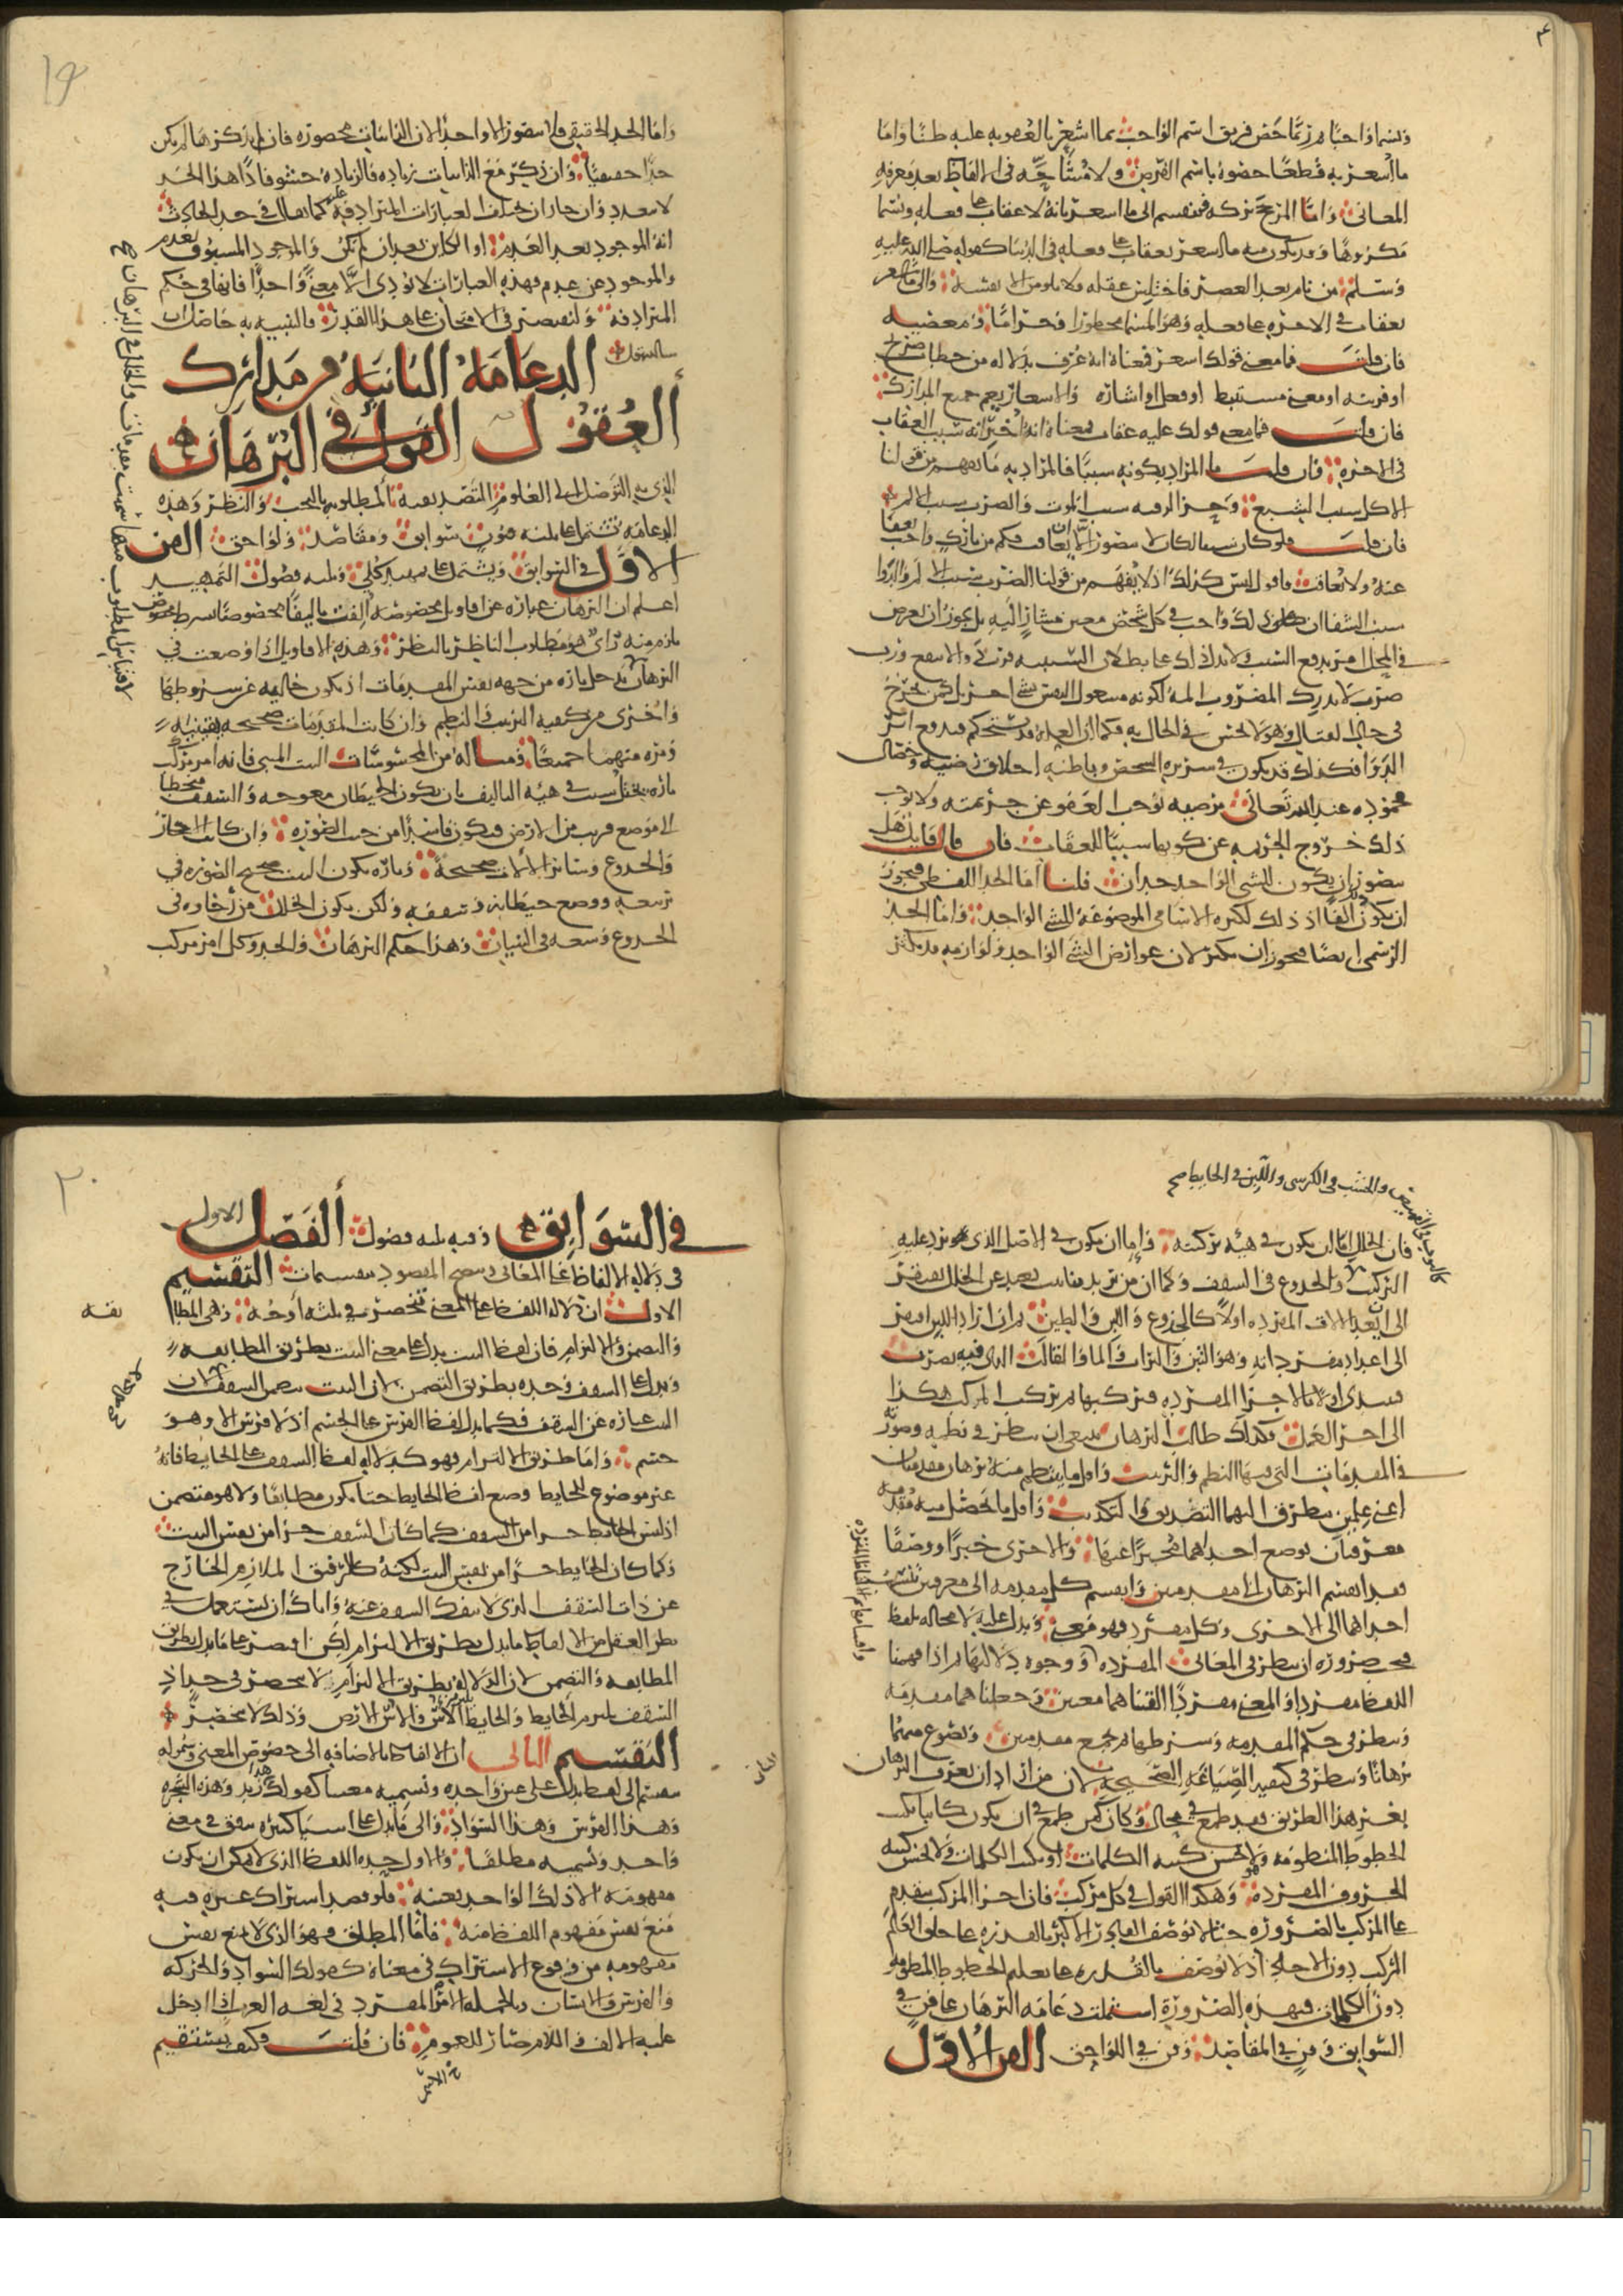 ويسمى واجبا ثم ربما خص فريق اسم الواجب بما اشعر بالعقوبه عليه ظنا واما
ما اشعر به قطعا خصوه باسم الفرض ولا مشاحه في الالفاظ بعد معرفه
المعاني واما المرجح تركه فينقسم الى ما اشعر بانه لا عقاب على فعله ويسمى
مكروها وقد يكون منه ما اشعر بعقاب على فعله في الدنيا كقوله صلى الله عليه
وسلم من نام بعد العصر فاختلس عقله فلا يلومن الا نفسه والى ما اشعر
بعقاب في الاخره على فعله وهو المسمى محظورا وحراما ومعصيه
فان قلت فما معنى قولك اشعر فمعناه انه عرف بدلاله من خطاب صريح
او قرينه او معنى مستنبط او فعل او اشاره والاشعار يعم جميع المدارك
فان قلت فما معنى قولك عليه عقاب فمعناه انه اخبر انه سبب العقاب
في الاخره فان قلت ما المراد بكونه سببا فالمراد به ما يفهم من قولنا
الاكل سبب الشبع وحز الرقبه سبب الموت والضرب سبب الالم
فان قلت فلو كان سببا لكان لا يتصور ان لا يعاقب وكم من تارك واجب يعفا
عنه ولا يعاقب فاقول ليس كذلك اذ لا يفهم من قولنا الضرب سبب الالم والدوا
سبب الشفا ان ذلك واجب في كل شخص معين مشار اليه بل يجوز ان يعرض
في المحل امر يدفع السبب ولا يدل ذلك على بطلان السببيه فرب دوا لا ينفع ورب
ضرب لا يدرك المضروب المه لكونه مشغول النفس بشي اخر كمن يجرح
في حال القتال وهو لا يحس في الحال به وكما ان العله قد تستحكم فتدفع اثر
الدوا فكذلك قد يكون في سريره الشخص وباطنه اخلاق رضيه وخصال
محموده عند الله تعالى مرضيه توجب العفو عن جريمته ولا يوجب
ذلك خروج الجريمه عن كونها سببا للعقاب فان قال قايل هل
يتصور ان يكون للشي الواحد حدان قلنا اما الحد اللفظي فيجوز
ان يكون الفا اذ ذلك لكثره الاسامي الموضوعه للشي الواحد واما الحد
الرسمي ايضا فيجوز ان يكثر لان عوارض الشي الواحد ولوازمه قد تكثر
١٩
واما الحد الحقيقي فلا يتصور الا واحدا لان الذاتيات محصوره فان لم يذكرها لم يكن
حدا حقيقيا وان ذكر مع الذاتيات زياده فالزياده حشو فاذا هذا الحد
لا يتعدد وان جاز ان تختلف العبارات المترادفه كما يقال في حد الحادث
انه الموجود بعد العدم او الكاين بعد ان لم يكن والموجود المسبوق بعدم
والموجود عن عدم فهذه العبارات لا تؤدي الا معنى واحدا فانها في حكم
المترادفه ولنقتصر في الامتحان على هذا القدر فالتنبيه به حاصل ان
شا الله تعالى الدعامه الثانيه من مدارك
العقول القول في البرهان
الذي به التوصل الى العلوم التصديقيه المطلوبه بالبحث والنظر وهذه
الدعامه تشتمل على ثلثه فنون سوابق ومقاصد ولواحق الفن
الاول في السوابق ويشتمل على تمهيد كلي وثلثه فصول التمهيد
اعلم ان البرهان عباره عن اقاويل مخصوصه الفت تاليفا مخصوصا بشرط مخصوص
يلزم منه راي هو مطلوب الناظر بالنظر وهذه الاقاويل اذا وضعت في
البرهان خلل تاره من جهه نفس المقدمات اذ يكون خاليه عن شروطها
واخرى من كيفيه الترتيب والنظم وان كانت المقدمات صحيحه يقينيه
ومره منهما جميعا ومثاله من المحسوسات البيت المبني فانه امر مركب
تاره يختل بسبب في هيئه التاليف بان يكون الحيطان معوجه والسقف منخفضا
الى موضع قريب من الارض فيكون فاسدا من حيث الصوره وان كانت الاحجار
والجذوع وساير الالات صحيحه وتاره يكون البيت صحيح الصوره في
تربيعه ووضع حيطانه وسقفه ولكن يكون الخلل من رخاوه في
الجذوع وشعث في اللبنات وهذا حكم البرهان والحد وكل امر مركب
كالثوب في القميص والخشب في الكرسي واللبن في الحايط صح
فان الخلل اما ان يكون في هيئه تركيبه واما ان يكون في الاصل الذي يرد عليه
التركيب كاللبن والجذوع في السقف وكما ان من يريد بنا بيت بعيد عن الخلل يفتقر
الى ان يعد الالات المفرده اولا كالجذوع واللبن والطين ثم ان اراد اللبن افتقر
الى اعداد مفرداته وهو التبن والتراب والما والقالب الذي فيه يضرب
فيبتدي اولا بالاجزا المفرده فيركبها ثم يركب المركب هكذا
الى اخر العمل فكذلك طالب البرهان ينبغي ان ينظر في نظمه وصورته
في المقدمات التي فيها النظم والترتيب واقل ما ينتظم منه برهان مقدمتان
اعني علمين يتطرق اليهما التصديق والتكذيب واقل ما تحصل منه مقدمه
معرفتان توضع احداهما مخبرا عنها والاخرى خبرا ووصفا
فقد انقسم البرهان الى مقدمتين وانقسم كل مقدمه الى معرفتين تنسب
احداهما الى الاخرى وكل مفرد فهو معنى ويدل عليه لا محاله بلفظ
فيجب ضروره ان ننظر في المعاني المفرده ووجوه دلالتها ثم اذا فهمنا
اللفظ مفردا والمعنى مفردا الفنا هما معنيين وجعلناهما مقدمه
وننظر في حكم المقدمه وشرطها ثم نجمع مقدمتين ونصوغ منهما
برهانا وننظر في كيفيه الصياغه الصحيحه لان من اراد ان يعرف البرهان
بغير هذا الطريق فقد طمع في محال وكان كمن طمع في ان يكون كاتبا يكتب
الخطوط المنظومه ولا يحسن كتبه الكلمات او يكتب الكلمات ولا يحسن كتبه
الحروف المفرده وهكذا القول في كل مركب فان اجزا المركب تتقدم
على المركب بالضروره حتى لا يوصف القادر الاكبر بالقدره على خلق العالم
المركب دون الاحاد اذ لا يوصف بالقدره على تعليم الخطوط المنظومه
دون الكلمات فبهذه الضروره اشتملت دعامه البرهان على فن في
السوابق وفن في المقاصد وفن في اللواحق الفن الاول
٢٠
في السوابق وفيه ثلثه فصول الفصل الاول
في دلاله الالفاظ على المعاني ويتضح المقصود بتقسيمات التقسيم
الاول ان دلاله اللفظ على المعنى تنحصر في ثلثه اوجه وهي المطابقه
والتضمن والالتزام فان لفظ البيت يدل على معنى البيت بطريق المطابقه
ويدل على السقف وحده بطريق التضمن لان البيت يتضمن السقف لان
البيت عباره عن السقف وكما يدل لفظ الفرس على الجسم اذ لا فرس الا وهو
جسم واما طريق الالتزام فهو كدلاله لفظ السقف على الحايط فانه
غير موضوع للحايط وضع لفظ الحايط حتى يكون مطابقا ولا هو متضمن
اذ ليس الحايط جزا من السقف كما كان السقف جزا من نفس البيت
وكما كان الحايط جزا من نفس البيت لكنه كالرفيق الملازم الخارج
عن ذات السقف الذي لا ينفك السقف عنه واياك ان تستعمل في
نظر العقل من الالفاظ ما يدل بطريق الالتزام لكن اقتصر على ما يدل بطريق
المطابقه والتضمن لان الدلاله بطريق الالتزام لا تنحصر في حد اذ
السقف يلزم الحايط والحايط الاس والاس الارض وذلك لا ينحصر
التقسيم الثاني ان الالفاظ بالاضافه الى خصوص المعنى وشموله
تنقسم الى لفظ يدل على عين واحده ونسميه معينا كقولك زيد وهذه الشجره
وهذا الفرس وهذا السواد والى ما يدل على اشيا كثيره تتفق في معنى
واحد ونسميه مطلقا والاول حده اللفظ الذي لا يمكن ان يكون
مفهومه الا ذلك الواحد بعينه فلو قصد اشتراك غيره فيه
منع نفس مفهوم اللفظ منه فاما المطلق فهو الذي لا يمنع نفس
مفهومه من وقوع الاشتراك في معناه كقولك السواد والحركه
والفرس والانسان وبالجمله الاسم المفرد في لغه العرب اذا ادخل
عليه الالف واللام صار للعموم فان قلت وكيف يستقيم